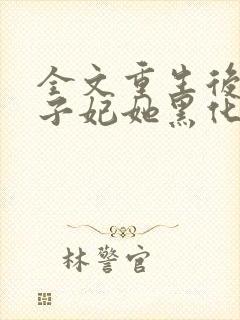 全文重生後
子妃她黑化
林警官